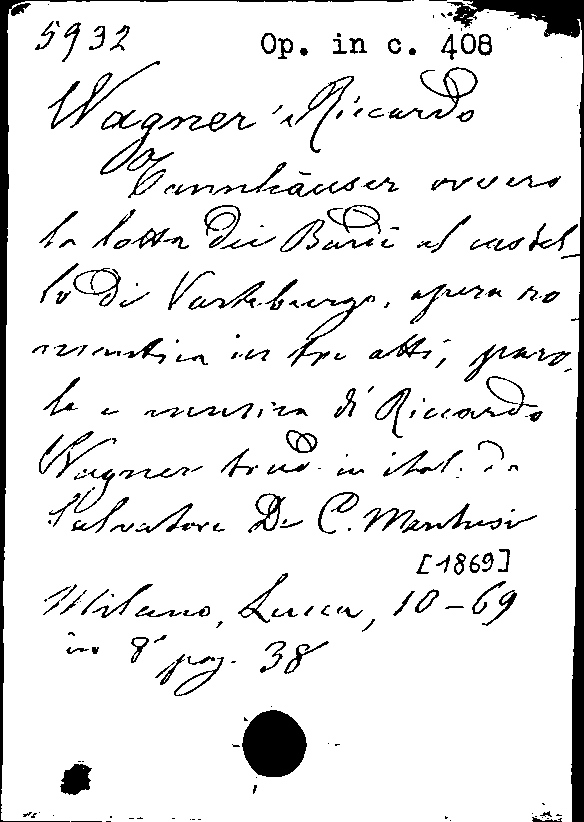 5932
Op. in c. 408
Wagner Riccardo
Tannhäuser ovvero
la lotta dei Bardi al castel-
lo di Vartburgo, opera ro-
mantica in tre atti, paro-
le e musica di Riccardo
Wagner trad. in ital. da
Salvatore De C. Marchesi
[1869]
Milano, Lucca, 10-69
in 8° pag. 38